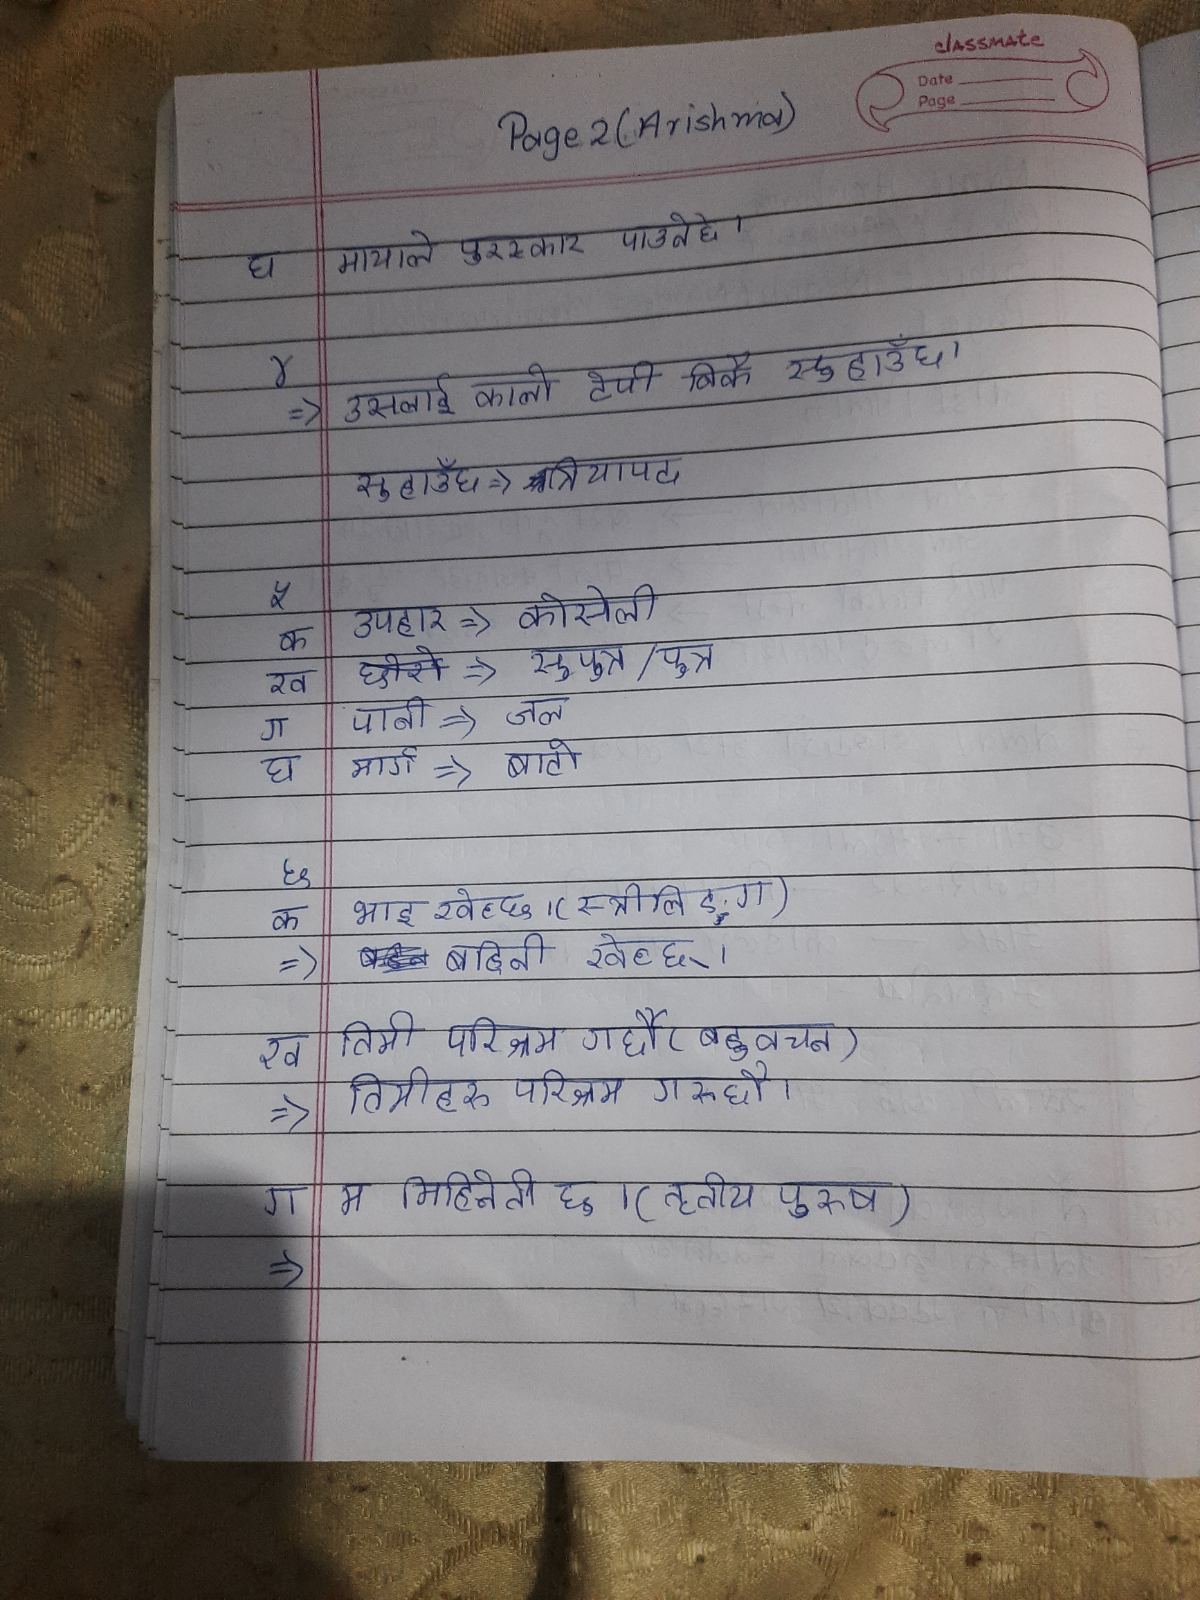 classmate
Date
Page
Page 2 (Arishma)
घ मायाले पुरस्कार पाउनेछे।
४
=> उसलाई कालो टोपी निकै सुहाउँछ।
सुहाउँछ => क्रियापद
५
क उपहार => कोसेली
ख छोरो => सुपुत्र/पुत्र
ग पानी => जल
घ मार्ग => बाटो
६
क भाइ खेल्छ।(स्त्रीलिङ्ग)
=> बहिनी खेल्छ।
ख तिमी परिश्रम गर्छौ(बहुवचन)
=> तिमीहरु परिश्रम गरूछौ।
ग म मिहिनेती छु।(तृतीय पुरुष)
=>